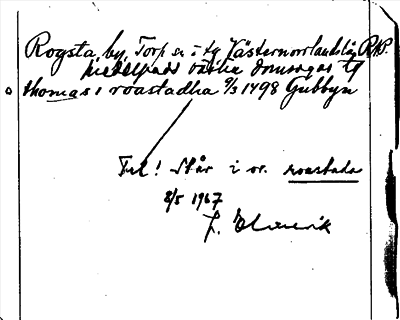 Rogsta by, Torp sn i tg Västernorrlands län RAP.
Medelpads västra domsagas tg
thomas i roastadha 9/3 1498 Gubbyn
Fel! Står i or. roastada
8/5 1967